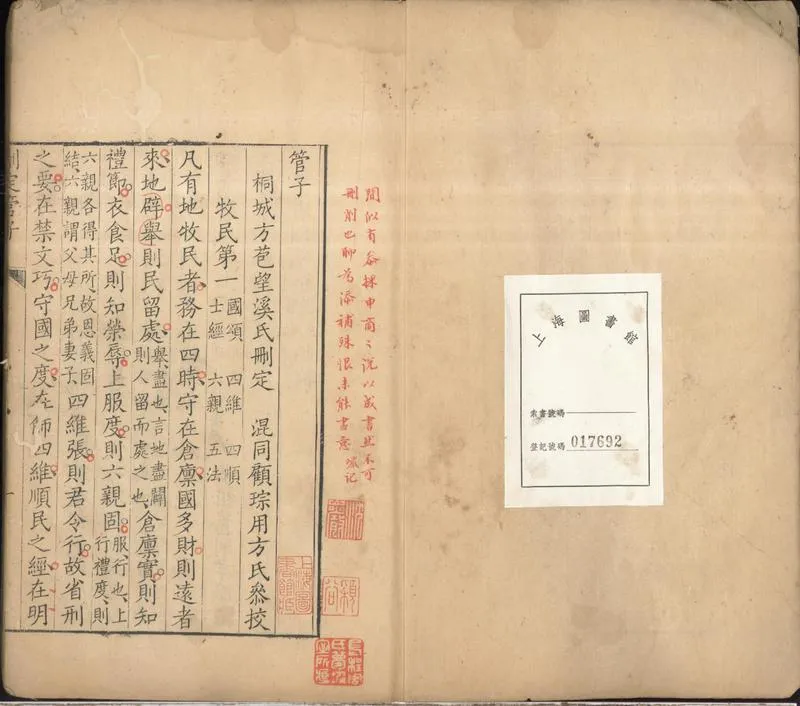 上海圖書館
索書號碼
登記號碼 017692
間似有參採申商之說以成書然不可
刪削也聊為添補殊恨未能書意
記
管子
桐城方苞望溪氏刪定 混同顧琮用方氏叅挍
牧民第一 國頌 四維 四順
士經 六親 五法
凡有地牧民者務在四時守在倉廩國多財則遠者
來地辟舉則民留處舉盡也言地盡闢
則人留而處之也倉廩實則知
禮節衣食足則知榮辱上服度則六親固服行也上
行禮度則
六親各得其所故恩義固
結六親謂父母兄弟妻子四維張則君令行故省刑
之要在禁文巧守國之度在師四維順民之經在明
刪定管子
上海圖書館藏